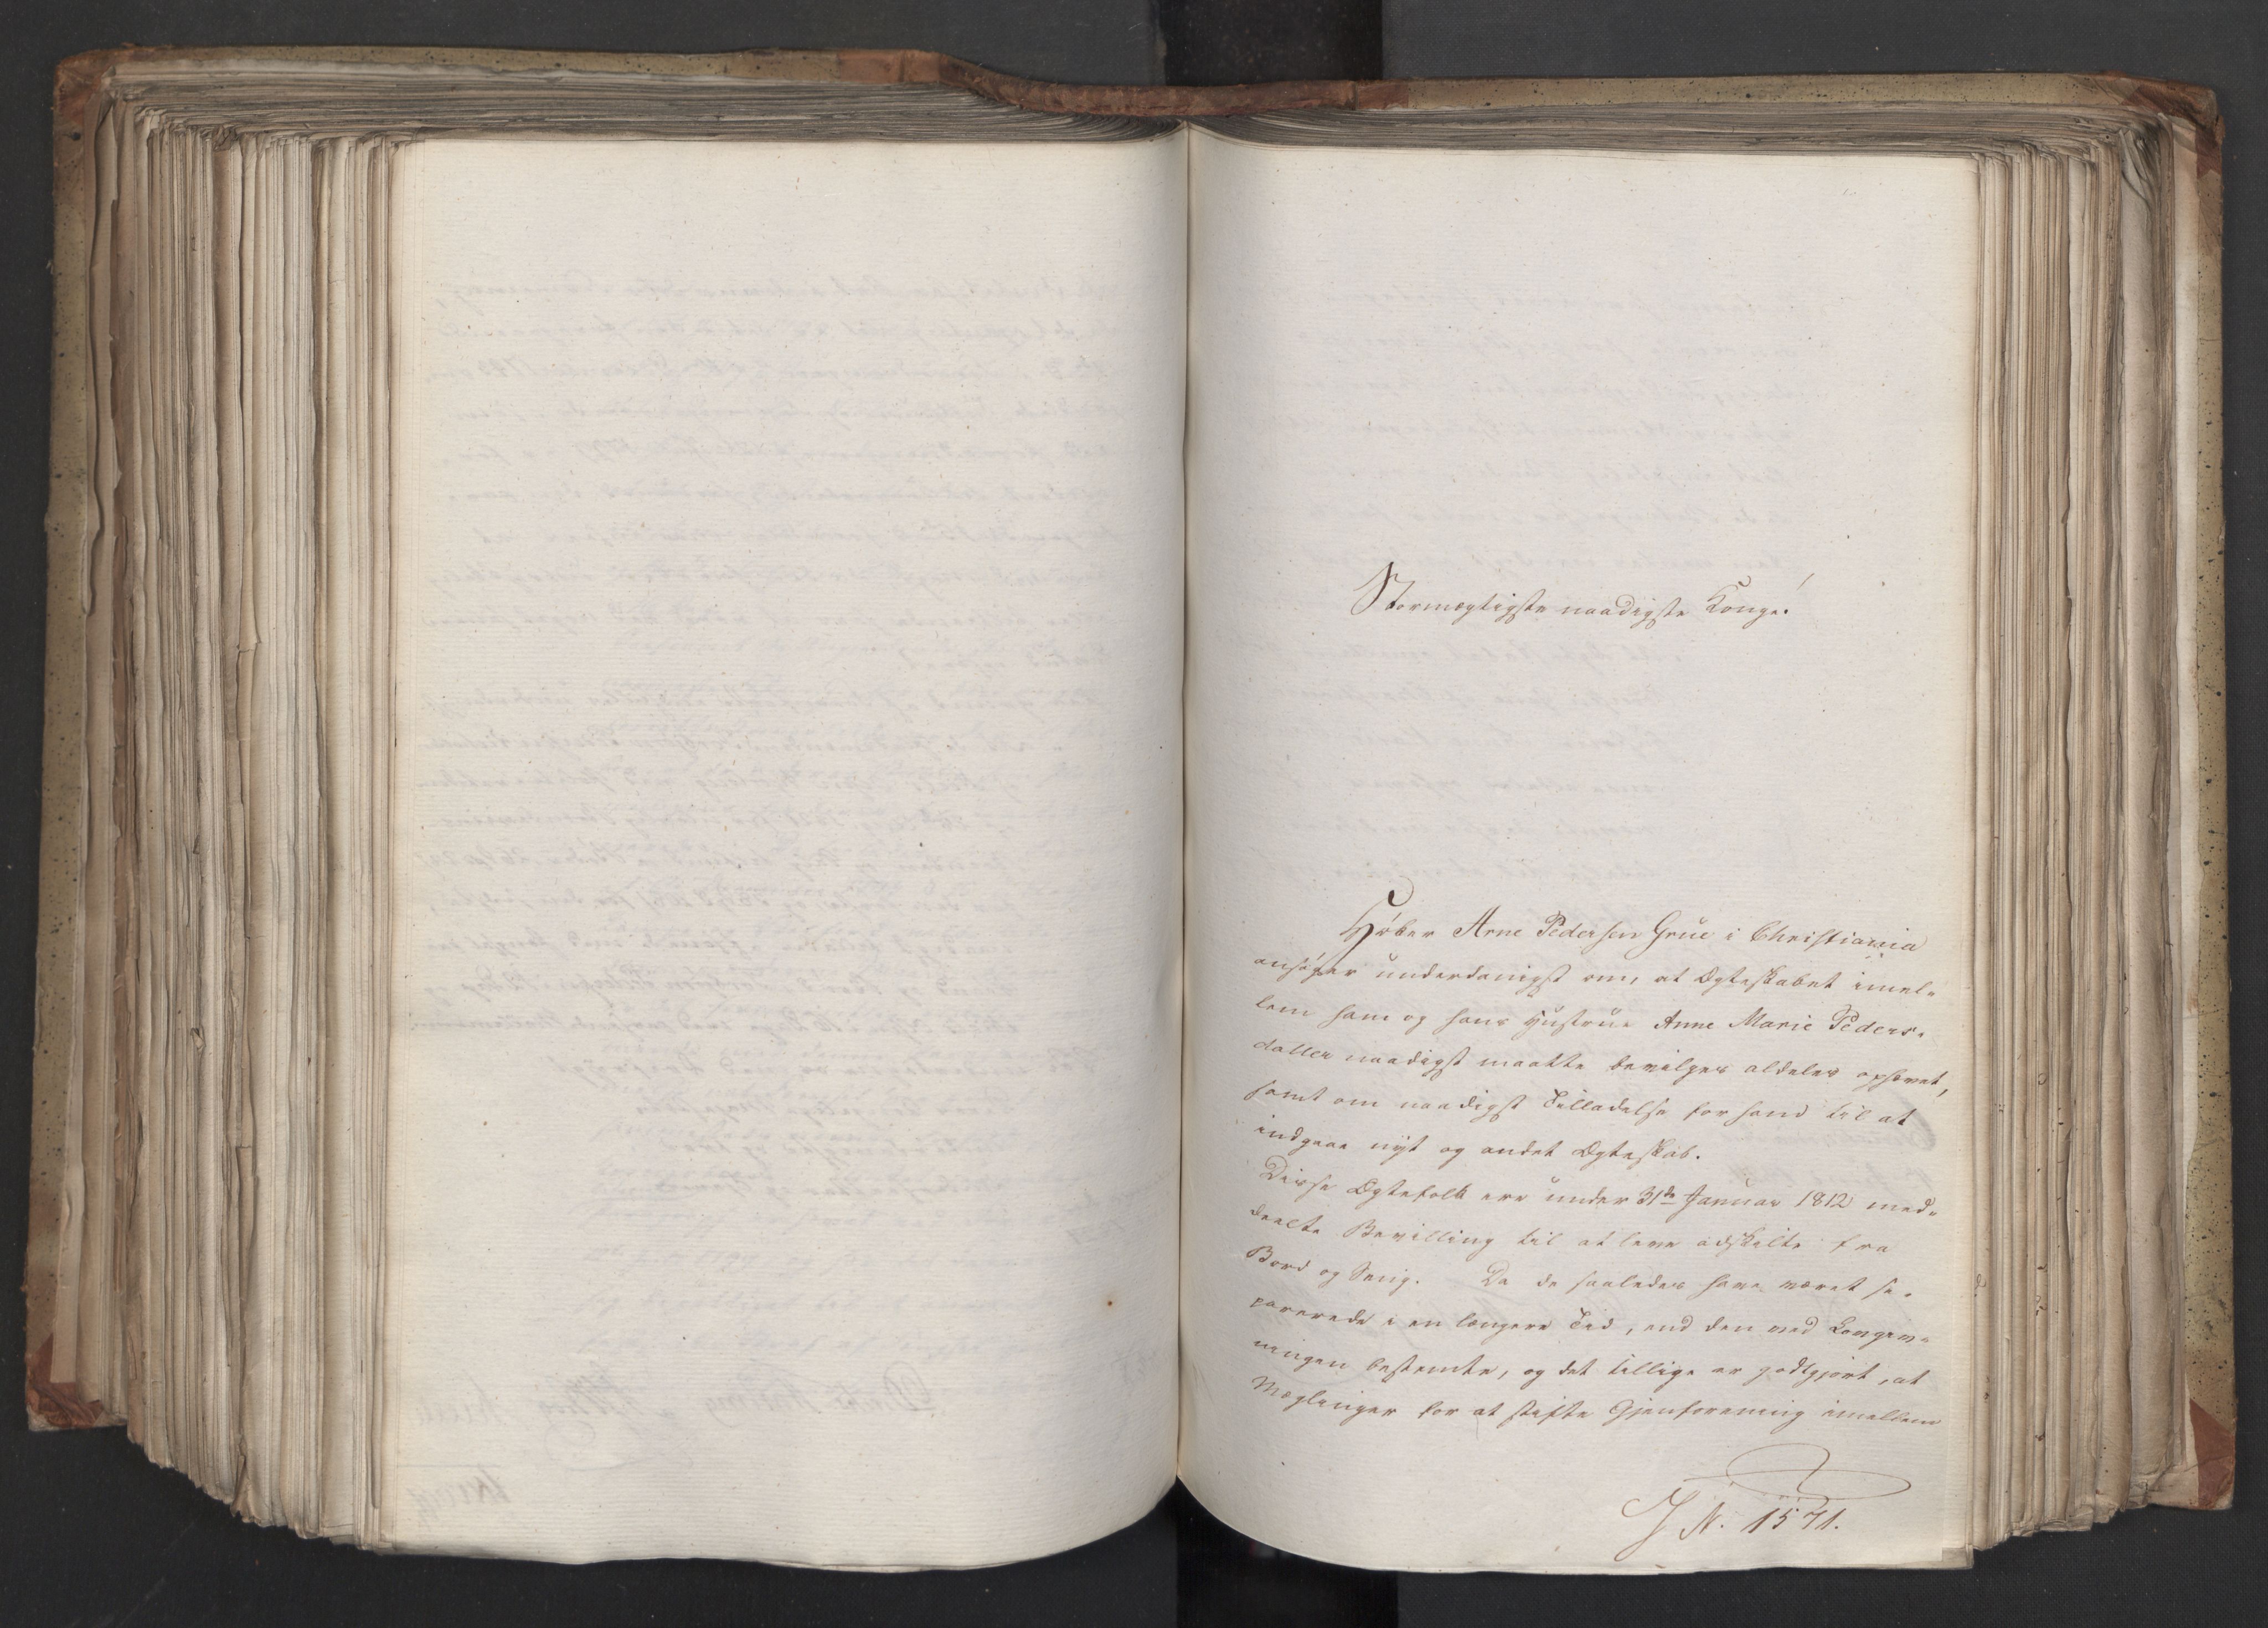 Stormægtigste naadigste Konge!
Høker Arne Pedersen Grue i Christiania
ansøger underdanigst om, at Ægteskabet imel-
lem ham og hans Hustrue Anne Marie Peders-
datter naadigst maatte bevilges aldeles ophævet,
samt om naadigst Tilladelse for ham til at
indgaae nyt og andet Ægteskab.
Disse Ægtefolk ere under 31te Januar 1812 med-
deelte Bevilling til at leve adskilte fra
Bord og Seng. Da de saaledes have været se-
parerede i en længere Tid, end den ved Lovgiv-
ningen bestemte, og det tillige er godtgjort, at
Mæglinger for at stifte Gjenforening imellem
J N. 1571.